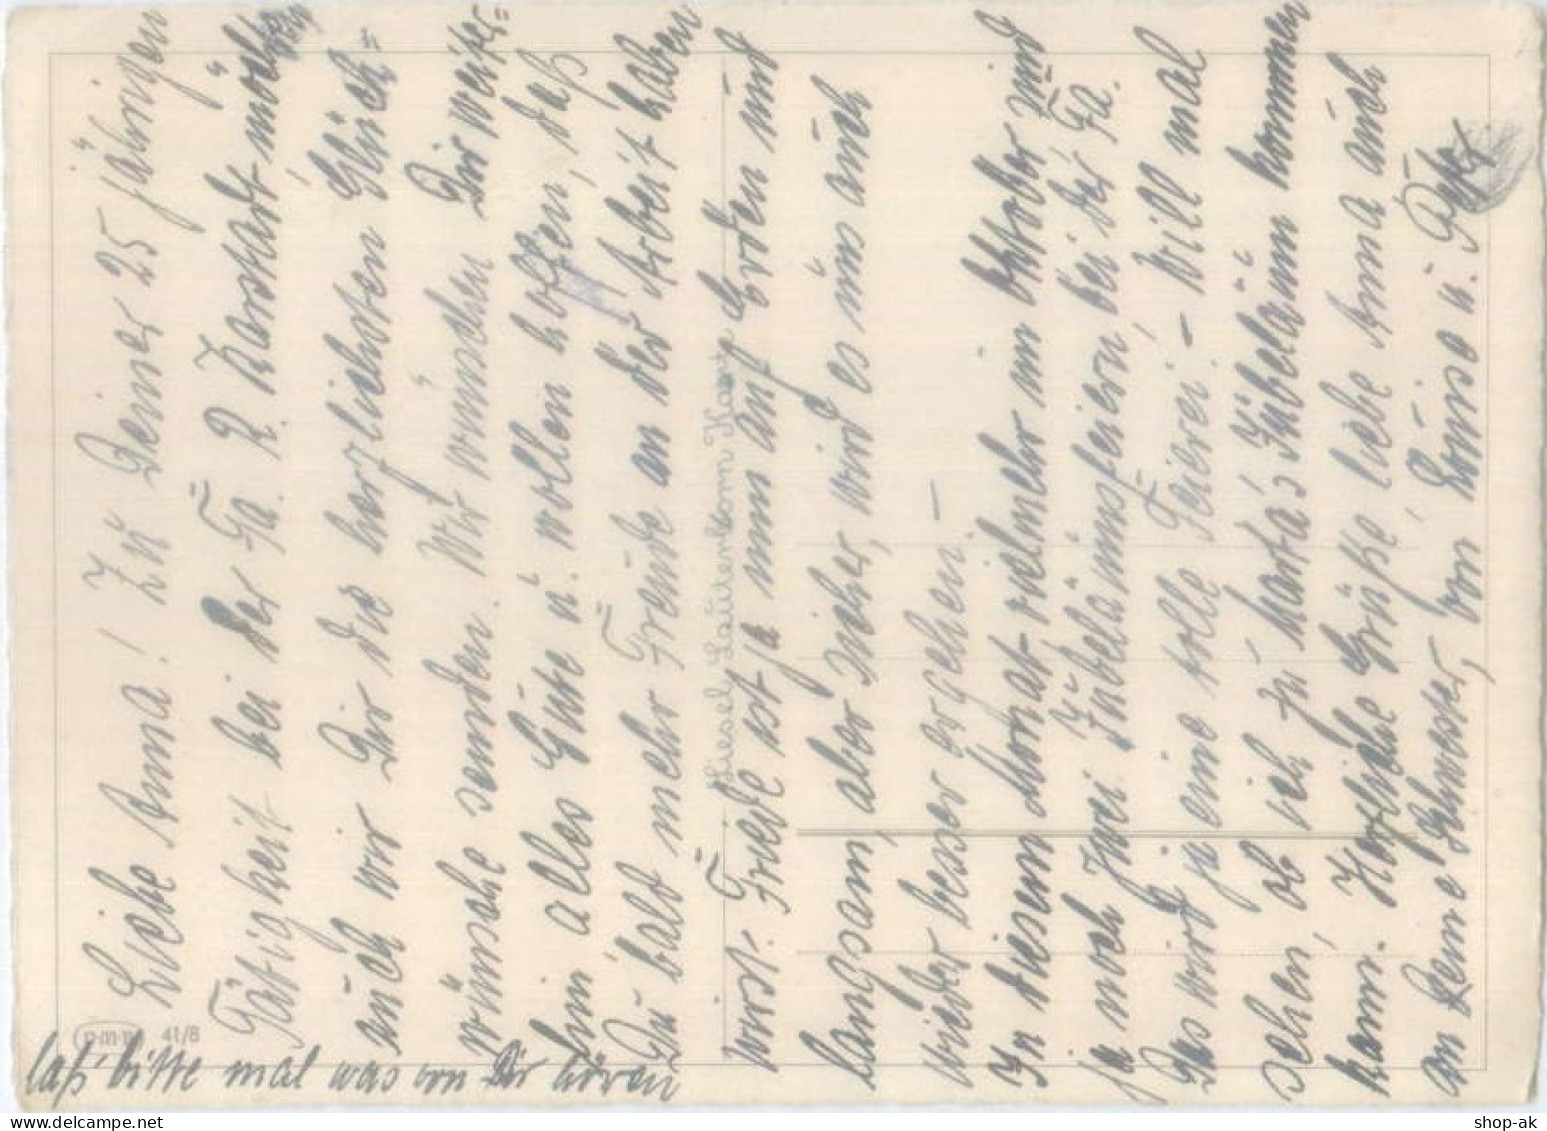 Liebe Anna! Zu Deiner 25 jährigen
Tätigkeit bei der Fa. R. Karstadt möchten
auch wir Dir die herzlichsten Glück=
wünsche senden. Wir wünschen Dir weiter=
hin alles Gute u. wollen hoffen, daß
Du bald mehr Freude an der Arbeit haben
wirst. Friede ist ja nun auf Erden und
langsam, aber sicher, wird es uns auch
wieder besser ergehen. –
In diesem Monat vielmehr im Oktober sind
ja noch zwei Jubeläumsfeiern, bei der Fa.
Das wird ja eine tolle Feierei. – Will mal
sehen, ob ich zu Marta's Jubeläum kommen
kann. Herzliche Grüße, liebe Anna auch
an Deine Schwester, von Louise u.
laß' bitte mal was von Dir hören
Liesel Lauterborn
p-m-n 41/8
shop-ak